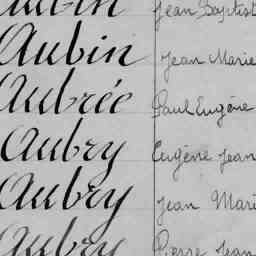 Aubin Jean Baptist
Aubin Jean Marie
Aubrée Paul Eugène
Aubry Eugène Jean
Aubry Jean Mari
Aubry Pierre Jean